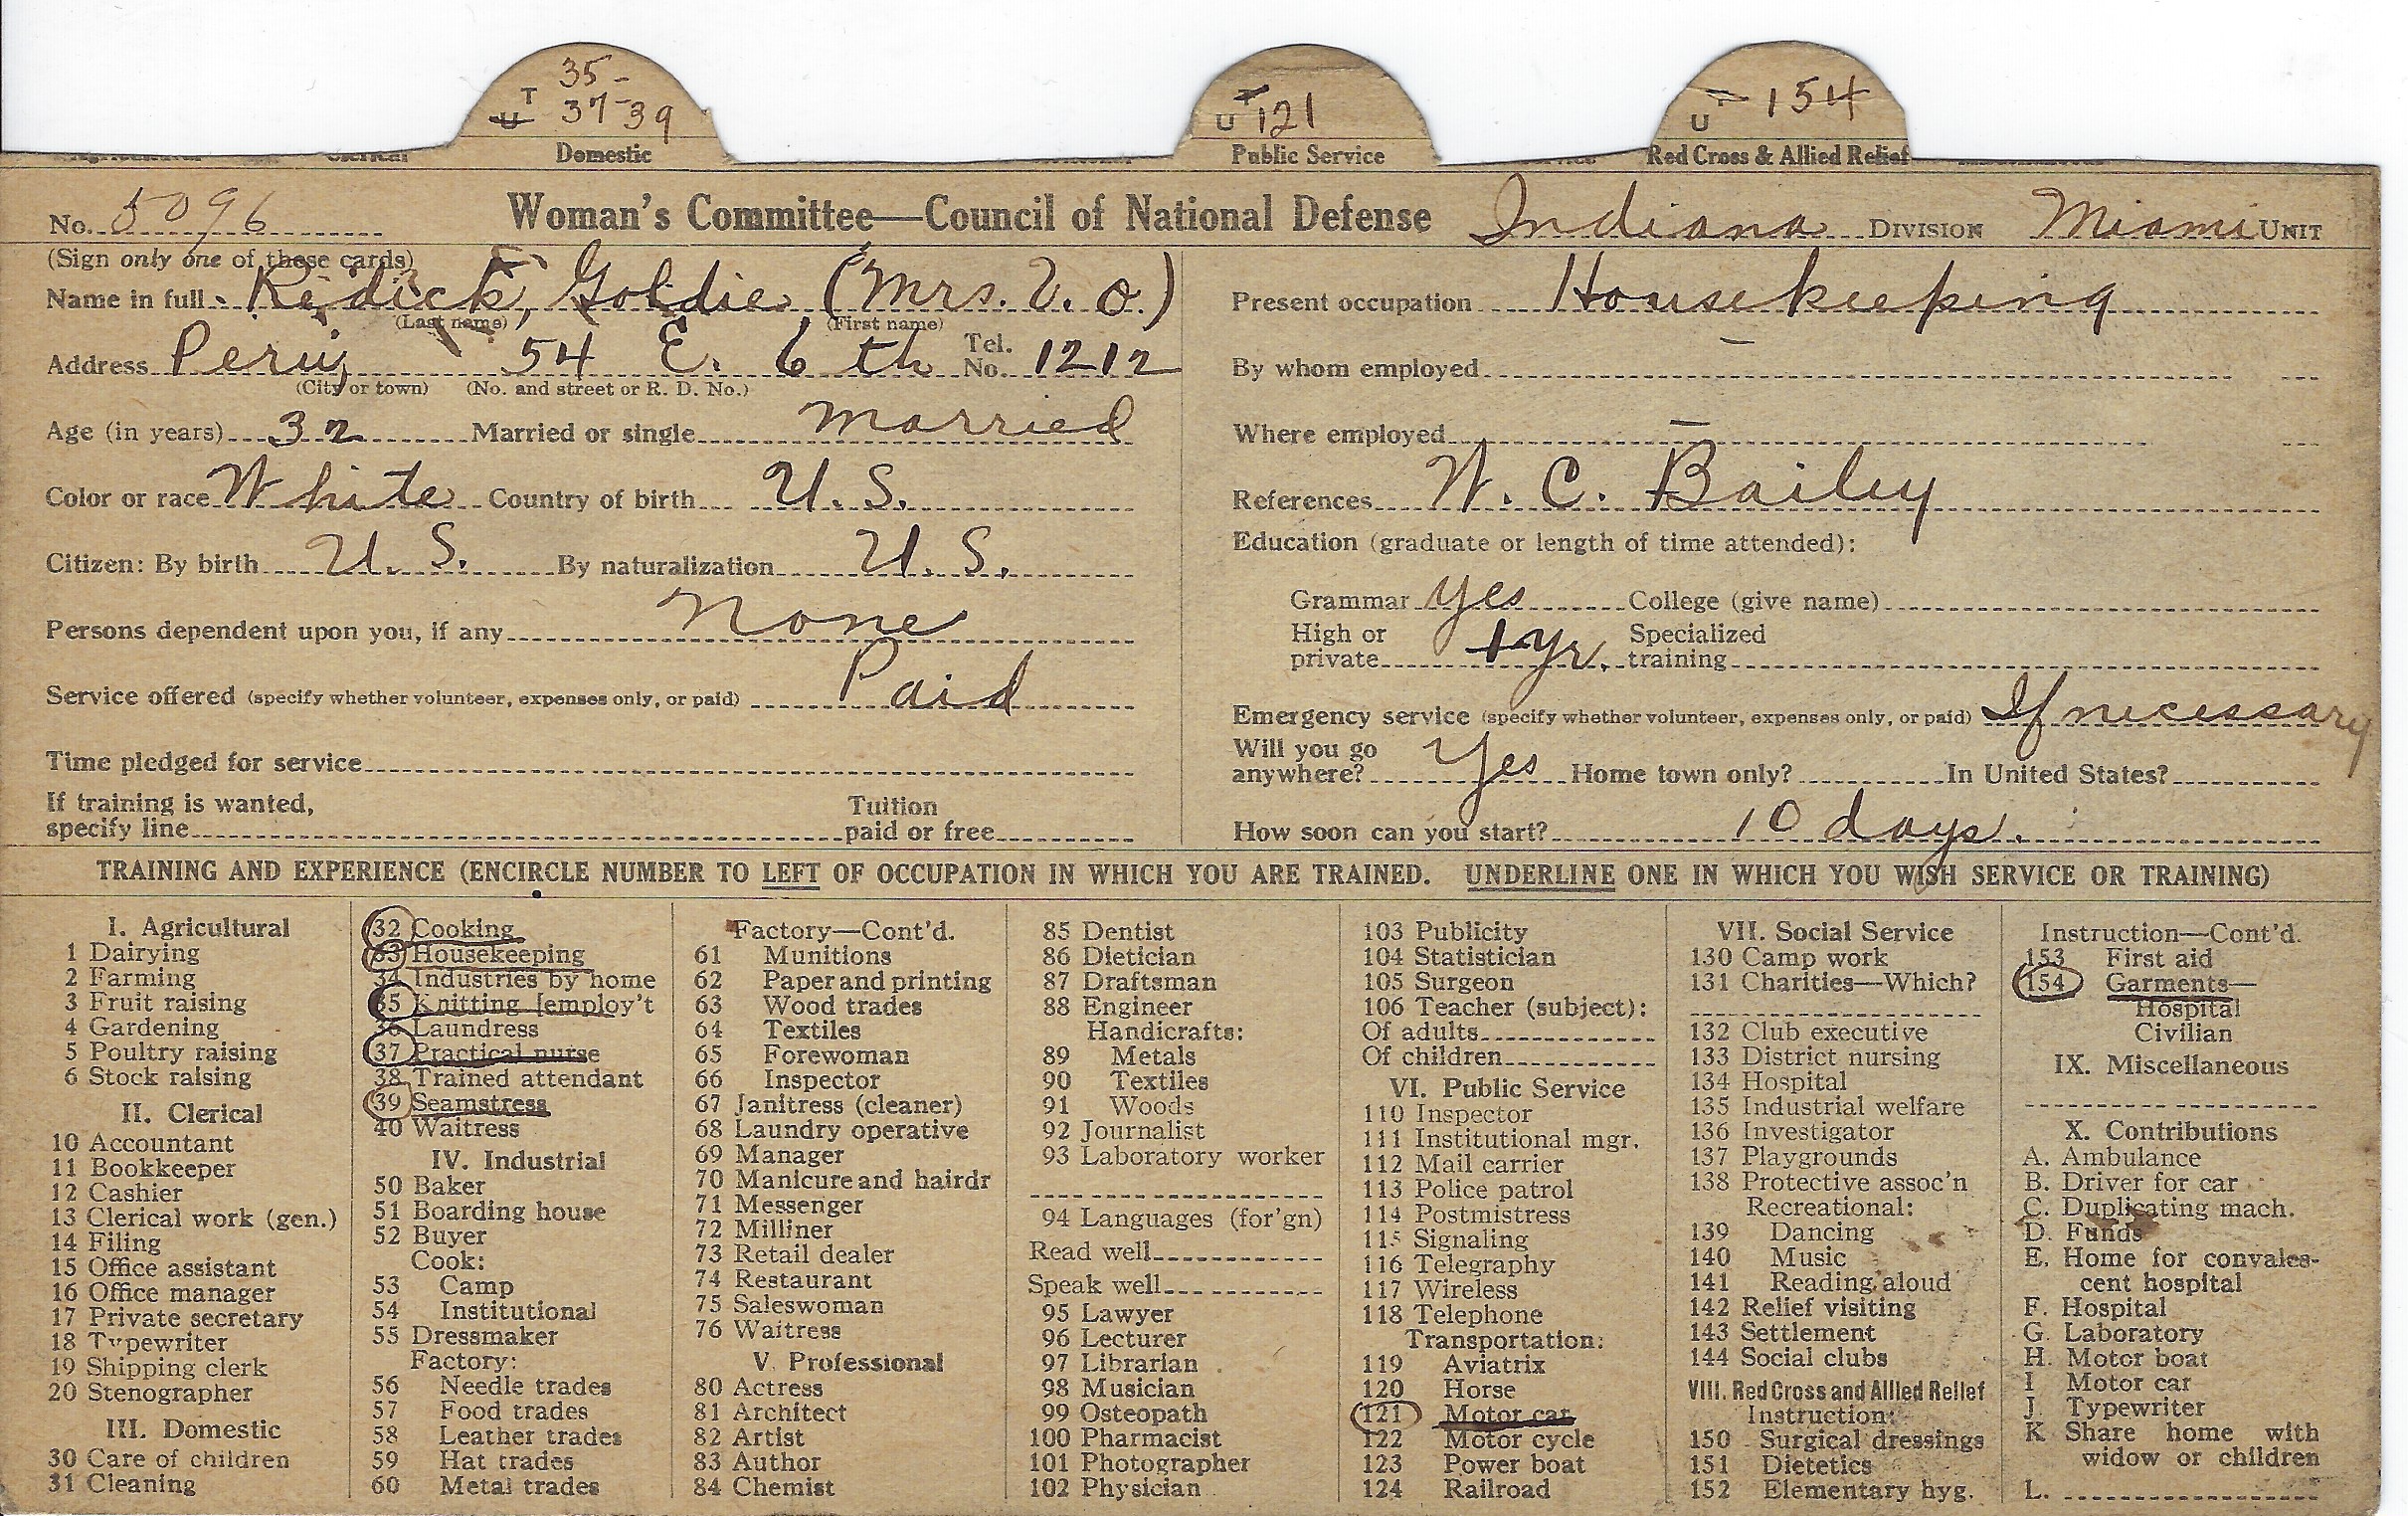 35-
T 37-39
U
Domestic
T
U 121
Public Service
T 154
U
Red Cross & Allied Relief
No. 5096 Woman's Committee—Council of National Defense Indiana DIVISION Miami UNIT
(Sign only one of these cards)
Name in full Redick, Goldie (Mrs. V. O.)
(Last name) (First name)
Address Peru, 54 E. 6th Tel. No. 1212
(City or town) (No. and street or R. D. No.)
Age (in years) 32 Married or single married
Color or race White Country of birth U. S.
Citizen: By birth U. S. By naturalization U. S.
Persons dependent upon you, if any none
Service offered (specify whether volunteer, expenses only, or paid) Paid
Time pledged for service
If training is wanted,
specify line Tuition paid or free
Present occupation Housekeeping
By whom employed –
Where employed –
References W. C. Bailey
Education (graduate or length of time attended):
Grammar yes College (give name)
High or private 1 yr. Specialized training
Emergency service (specify whether volunteer, expenses only, or paid) If necessary
Will you go anywhere? Yes Home town only? In United States?
How soon can you start? 10 days.
TRAINING AND EXPERIENCE (ENCIRCLE NUMBER TO LEFT OF OCCUPATION IN WHICH YOU ARE TRAINED. UNDERLINE ONE IN WHICH YOU WISH SERVICE OR TRAINING)
I. Agricultural
1 Dairying
2 Farming
3 Fruit raising
4 Gardening
5 Poultry raising
6 Stock raising
II. Clerical
10 Accountant
11 Bookkeeper
12 Cashier
13 Clerical work (gen.)
14 Filing
15 Office assistant
16 Office manager
17 Private secretary
18 Typewriter
19 Shipping clerk
20 Stenographer
III. Domestic
30 Care of children
31 Cleaning
32 Cooking
33 Housekeeping
34 Industries by home
35 Knitting [employ't
36 Laundress
37 Practical nurse
38 Trained attendant
39 Seamstress
40 Waitress
IV. Industrial
50 Baker
51 Boarding house
52 Buyer
Cook:
53 Camp
54 Institutional
55 Dressmaker
Factory:
56 Needle trades
57 Food trades
58 Leather trades
59 Hat trades
60 Metal trades
Factory—Cont'd.
61 Munitions
62 Paper and printing
63 Wood trades
64 Textiles
65 Forewoman
66 Inspector
67 Janitress (cleaner)
68 Laundry operative
69 Manager
70 Manicure and hairdr
71 Messenger
72 Milliner
73 Retail dealer
74 Restaurant
75 Saleswoman
76 Waitress
V. Professional
80 Actress
81 Architect
82 Artist
83 Author
84 Chemist
85 Dentist
86 Dietician
87 Draftsman
88 Engineer
Handicrafts:
89 Metals
90 Textiles
91 Woods
92 Journalist
93 Laboratory worker
94 Languages (for'gn)
Read well
Speak well
95 Lawyer
96 Lecturer
97 Librarian
98 Musician
99 Osteopath
100 Pharmacist
101 Photographer
102 Physician
103 Publicity
104 Statistician
105 Surgeon
106 Teacher (subject):
Of adults
Of children
VI. Public Service
110 Inspector
111 Institutional mgr.
112 Mail carrier
113 Police patrol
114 Postmistress
115 Signaling
116 Telegraphy
117 Wireless
118 Telephone
Transportation:
119 Aviatrix
120 Horse
121 Motor car
122 Motor cycle
123 Power boat
124 Railroad
VII. Social Service
130 Camp work
131 Charities—Which?
132 Club executive
133 District nursing
134 Hospital
135 Industrial welfare
136 Investigator
137 Playgrounds
138 Protective assoc'n
Recreational:
139 Dancing
140 Music
141 Reading aloud
142 Relief visiting
143 Settlement
144 Social clubs
VIII. Red Cross and Allied Relief
Instruction:
150 Surgical dressings
151 Dietetics
152 Elementary hyg.
Instruction—Cont'd.
153 First aid
154 Garments—
Hospital
Civilian
IX. Miscellaneous
X. Contributions
A. Ambulance
B. Driver for car
C. Duplicating mach.
D. Funds
E. Home for convales-
cent hospital
F. Hospital
G. Laboratory
H. Motor boat
I Motor car
J. Typewriter
K Share home with
widow or children
L.